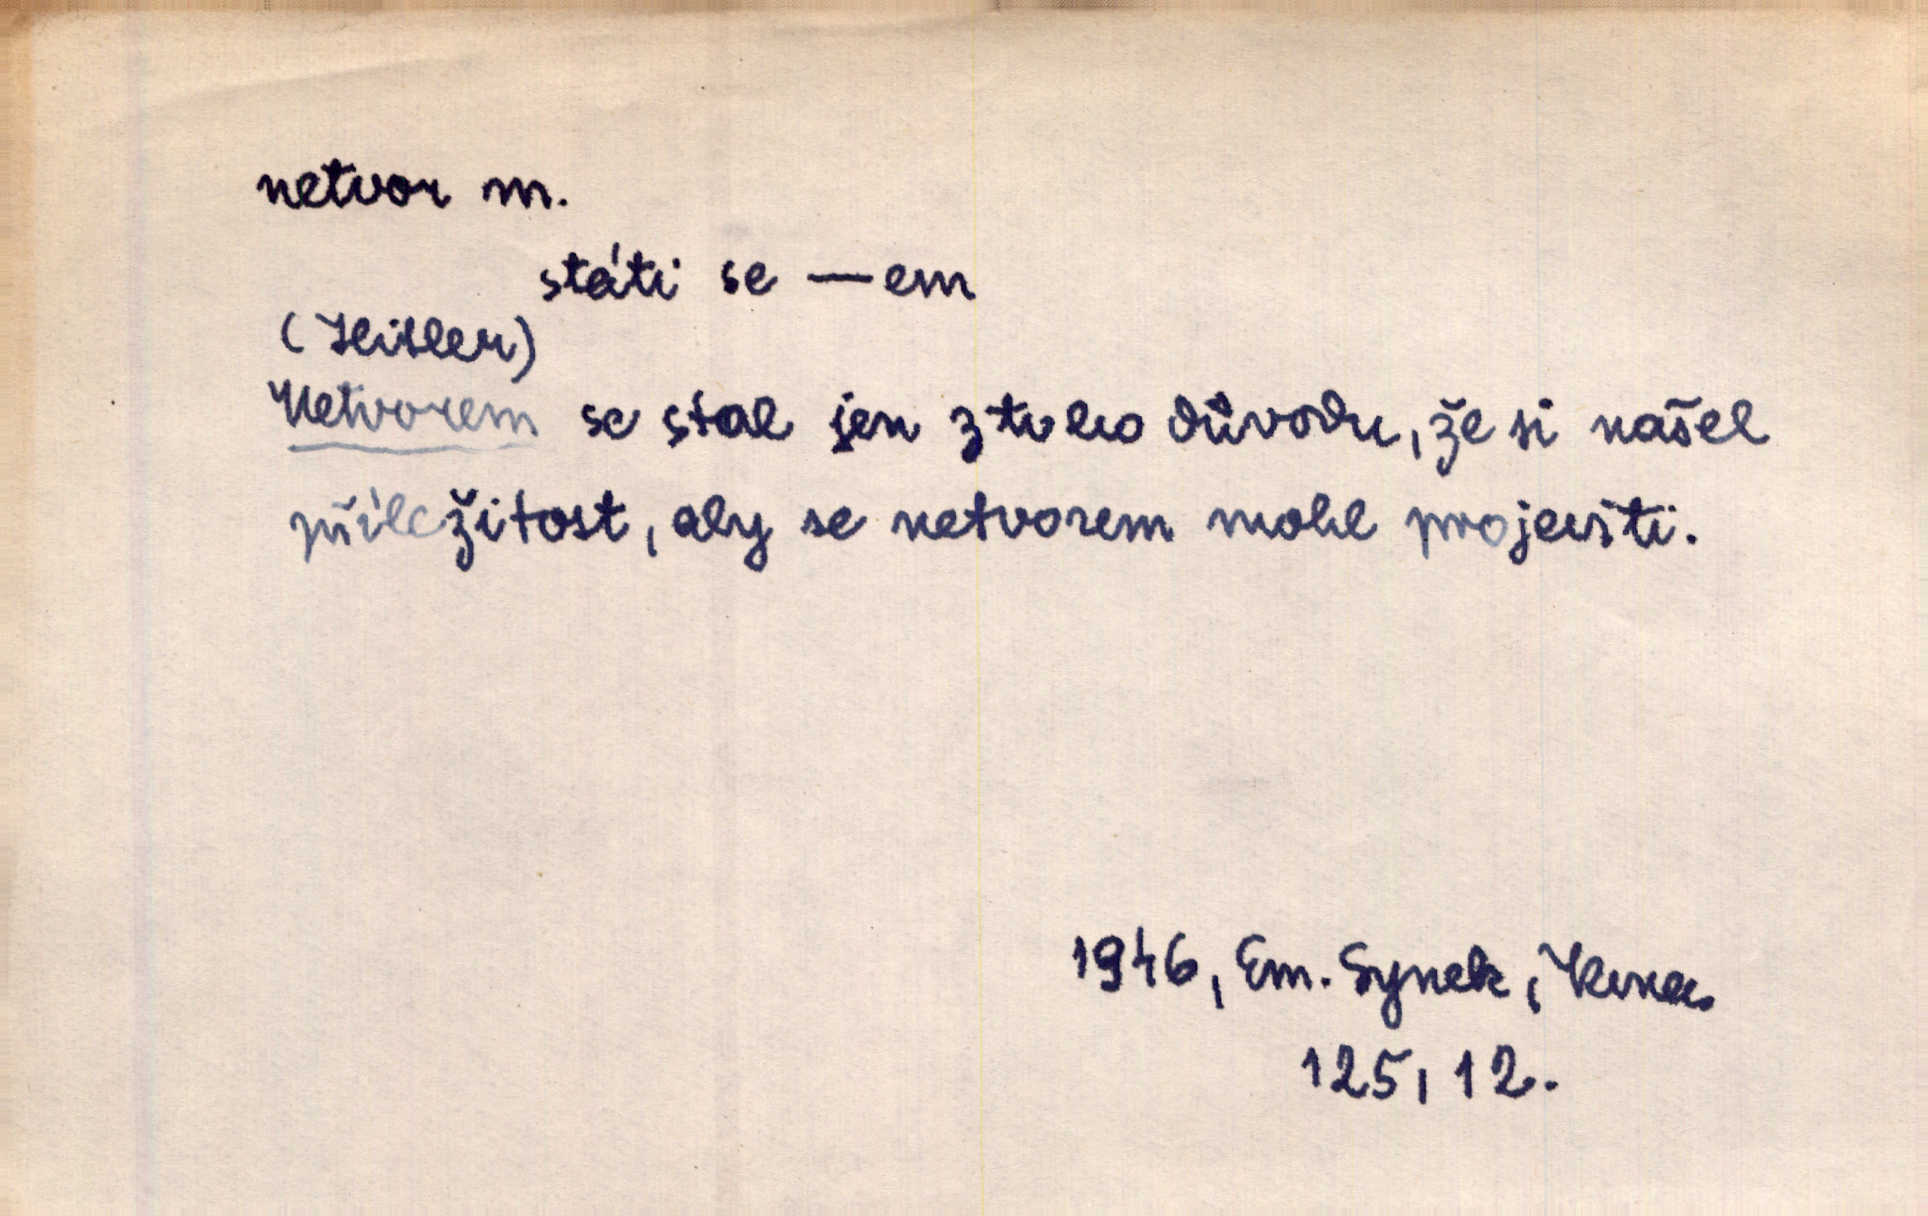 netvor m.
státi se —em
(Hitler)
Netvorem se stal jen z toho důvodu, že si našel
příležitost, aby se netvorem mohl projeviti.
1946, Em. Synek,
125, 12.